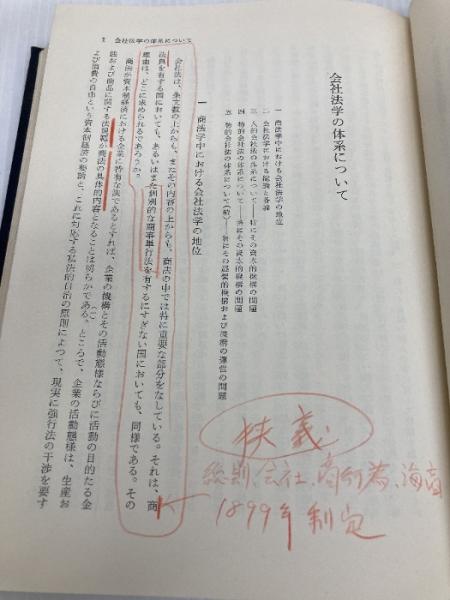 1　会社法学の体系について
会社法学の体系について
一　商法学中における会社法学の地位
二　会社法学における総論と各論
三　人的会社法の体系について――特にその資本的機構の問題
四　物的会社法の体系について――特にその資本的機構の問題
五　物的会社法の体系について(続)――特にその経営的機構および機構の運営の問題
一　商法学中における会社法学の地位
会社法は、条文数の上からも、またその内容の上からも、商法の中では特に重要な部分をなしている。それは、商
法典を有する国においても、あるいはまた個別的な商事単行法を有するにすぎない国においても、同様である。その
理由は、どこに求められるであろうか。
商法が資本制経済における企業に特有な法であるとすれば、企業の機構とその活動態様ならびに活動の目的たる金
銭および商品に関する法規整が商法の具体的内容となることは明らかである。ところで、企業の活動態様は、生産お
よび消費の自由という資本制経済の秘訣と、これに対応する私法的自治の原則によつて、現実に強行法の干渉を要す
狭義:
総則、会社、商行為、海商
1899年 制定